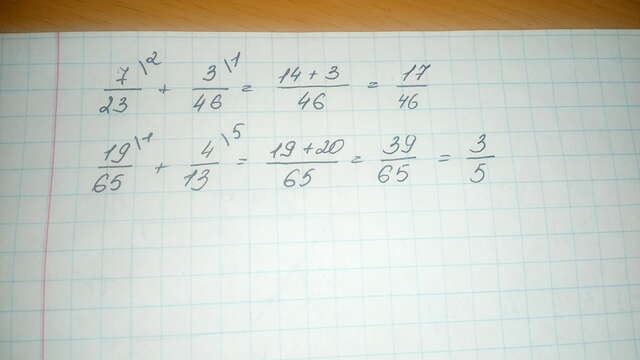 7/23 \2 + 3/46 \1 = 14+3/46 = 17/46
19/65 \1 + 4/13 \5 = 19+20/65 = 39/65 = 3/5